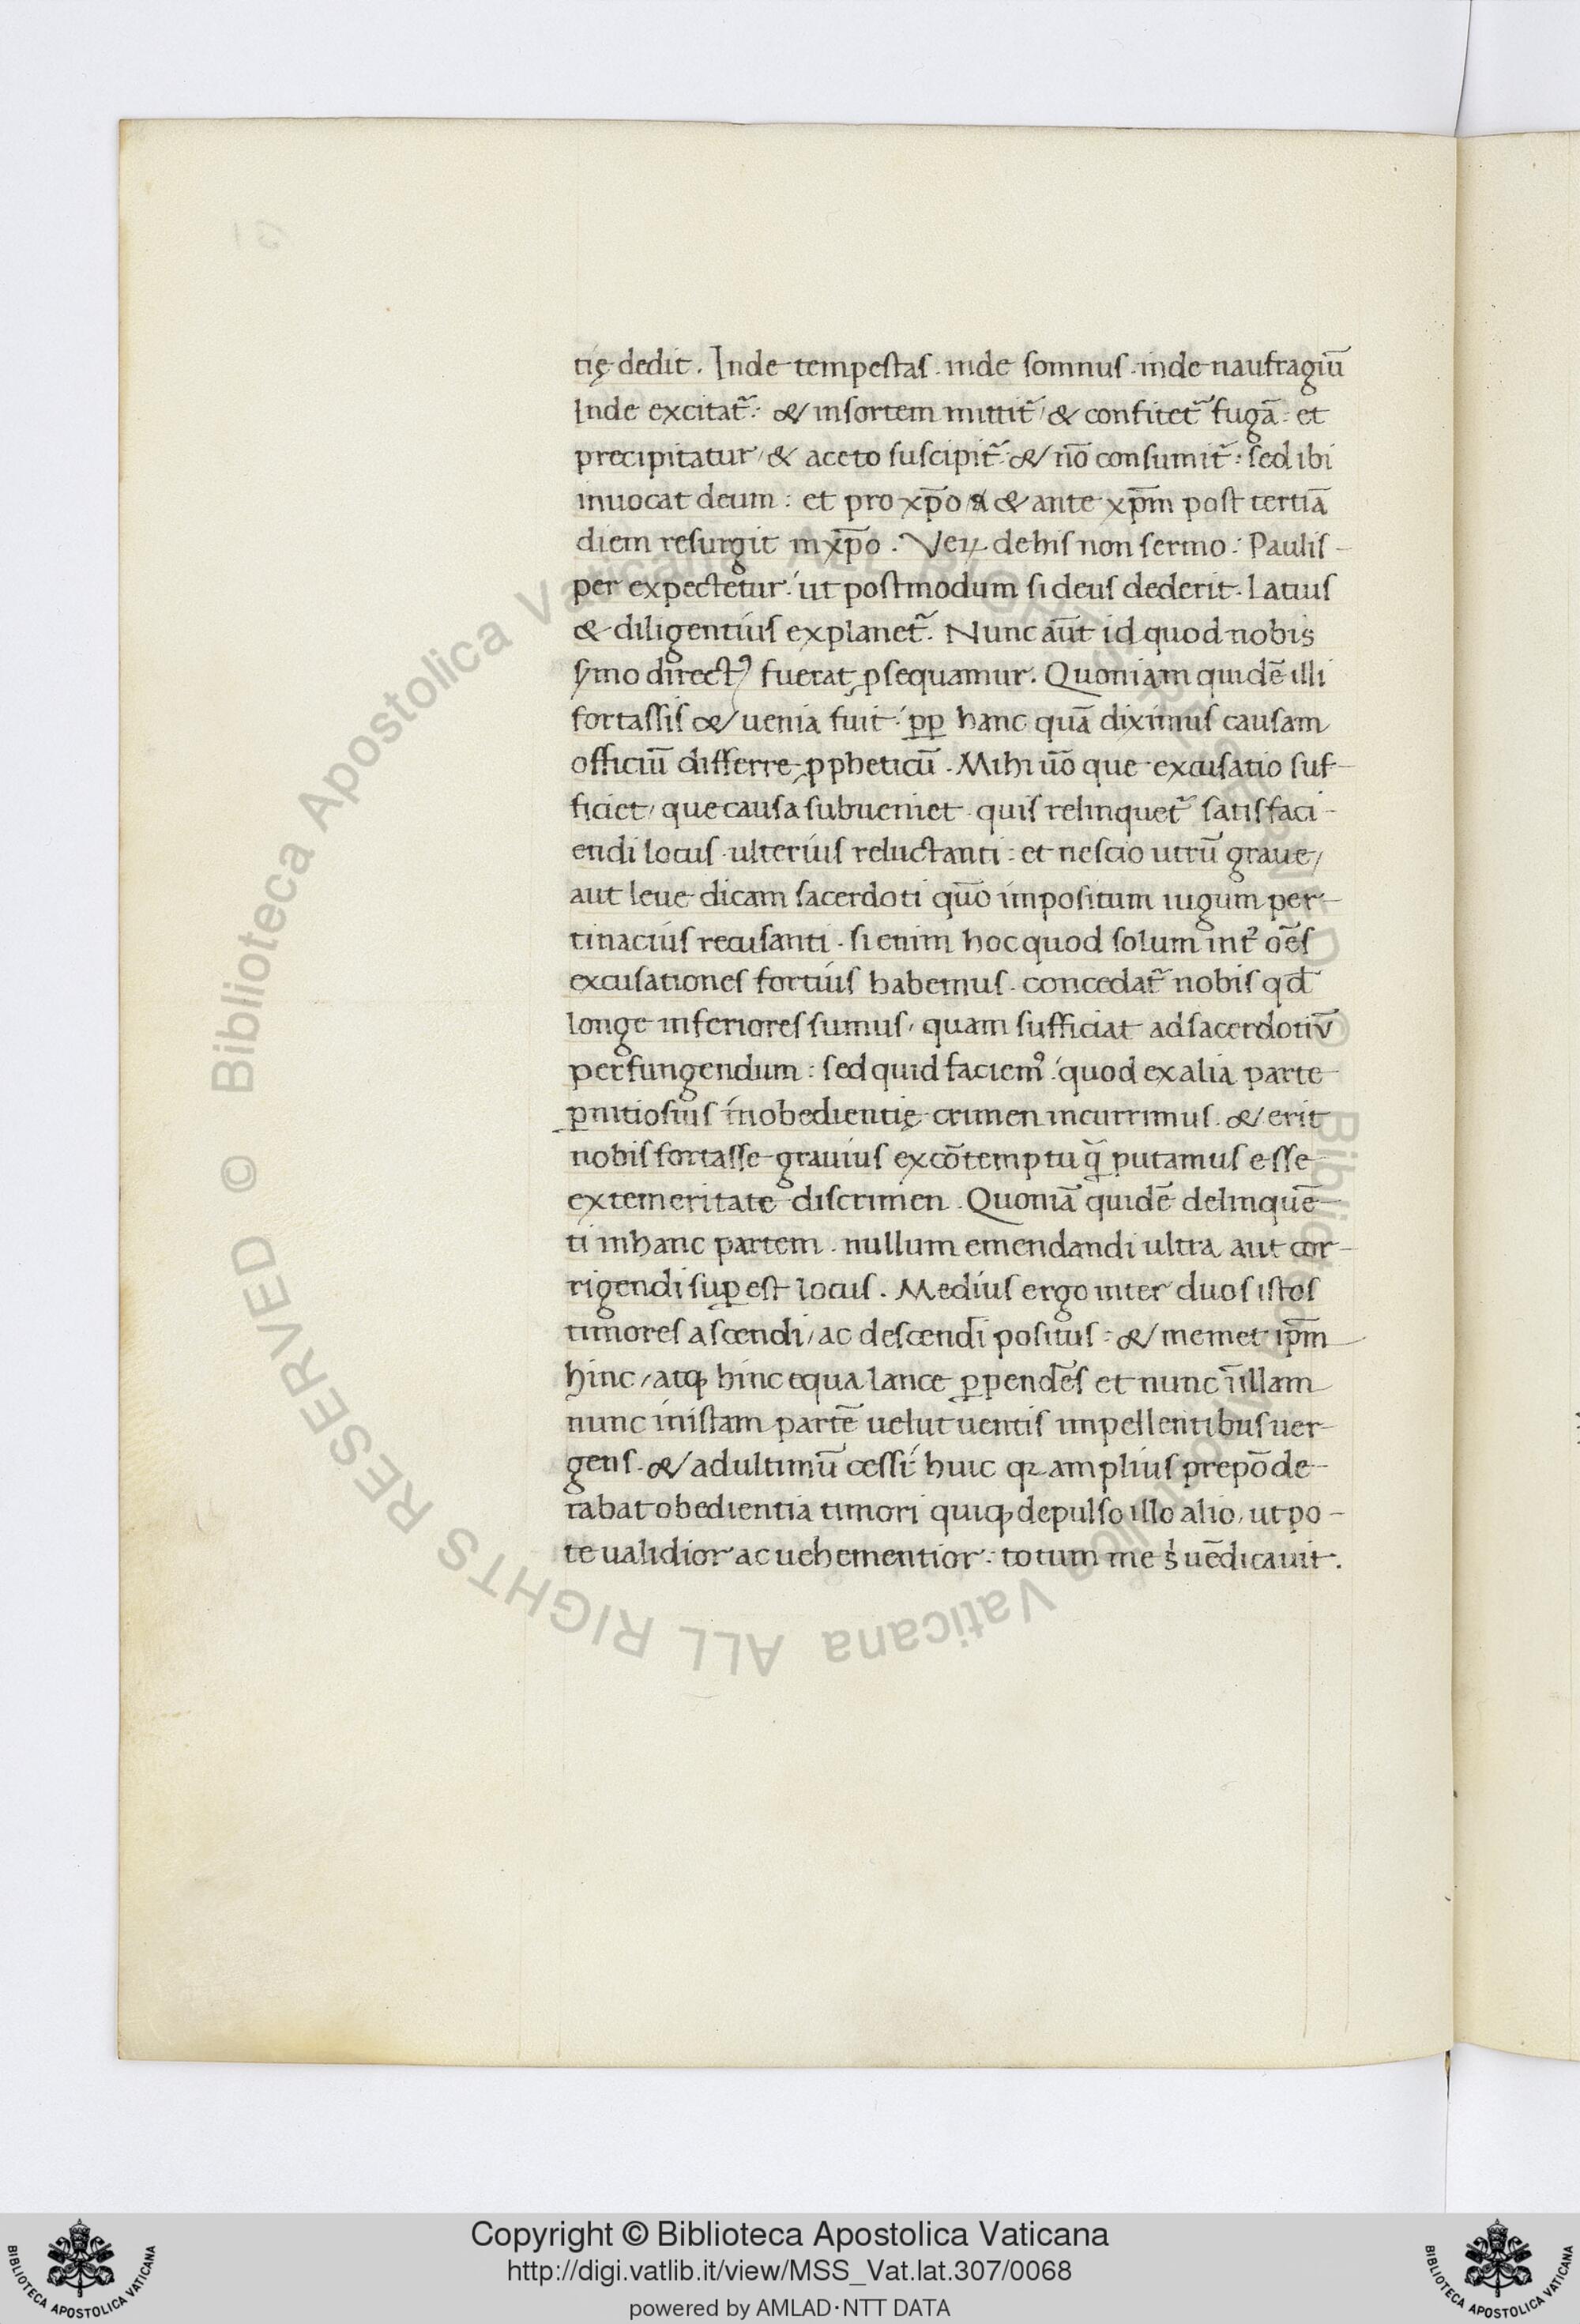 tię dedit. Inde tempestas. inde somnus. inde naufragiū
Inde excitat᷑: & insortem mittit᷑ / & confitet᷑ fugā: et
precipitatur / & aceto suscipit᷑: & nō consumit᷑: sed ibi
inuocat deum: et pro xp̄o & ante xp̄m post tertiā
diem resurgit inxp̄o. Veꝝ dehis non sermo: Paulis-
per expectetur: ut postmodum si deus dederit. Latius
& diligentius explanet᷑. Nunc aūt id quod nobis
ẜmo directꝰ fuerat ꝓsequamur. Quoniam quidē illi
fortassis & uenia fuit: ꝓp hanc quā diximus causam
officiū differre ꝓpheticū. Mihi ūo que excusatio suf-
ficiet / que causa subueniet. quis relinquet᷑ satisfaci-
endi locus. ulterius reluctanti: et nescio utrū graue /
aut leue dicam sacerdoti quō impositum iugum per-
tinacius recusanti. si enim hoc quod solum int᷑ oēs
excusationes fortius habemus. concedat᷑ nobis qd̄
longe inferiores sumus / quam sufficiat adsacerdotiū
perfungendum: sed quid faciemꝰ: quod exalia parte
ꝑnitiosius inobedientię crimen incurrimus. & erit
nobis fortasse grauius excōtemptu q̄ putamus esse
extemeritate discrimen. Quoniā quidē delinquē-
ti inhanc partem. nullum emendandi ultra aut cor-
rigendi suꝑest locus. Medius ergo inter duos istos
timores ascendi / ac descendi positus: & memet ip̄m
hinc / atqꝫ hinc equa lance ꝑpendēs et nunc īillam
nunc inistam partē uelut uentis impellentibus uer-
gens. & adultimū cessi huic qꝛ amplius prepōde-
rabat obedientia timori quiqꝫ depulso illo alio, ut po-
te ualidior ac uehementior: totum me s᷑ uēdicauit.
Copyright © Biblioteca Apostolica Vaticana
http://digi.vatlib.it/view/MSS_Vat.lat.307/0068
powered by AMLAD·NTT DATA
BIBLIOTECA APOSTOLICA VATICANA
BIBLIOTECA APOSTOLICA VATICANA
© Biblioteca Apostolica Vaticana ALL RIGHTS RESERVED
© Biblioteca Apostolica Vaticana ALL RIGHTS RESERVED